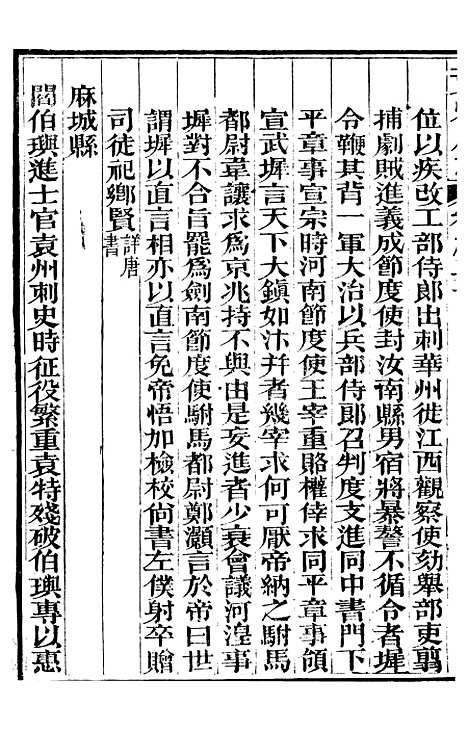 位以疾改工部侍郎出刺華州徙江西觀察使劾舉部吏翦
捕劇賊進義成節度使封汝南縣男宿將暴謷不循令者墀
令鞭其背一軍大治以兵部侍郎召判度支進同中書門下
平章事宣宗時河南節度使王宰重賂權倖求同平章事領
宣武墀言天下大鎭如汴幷者幾宰求何可厭帝納之駙馬
都尉韋讓求爲京兆持不與由是妄進者少衰會議河湟事
墀對不合旨罷爲劍南節度使駙馬都尉鄭灝言於帝曰世
謂墀以直言相亦以直言免帝悟加檢校尙書左僕射卒贈
司徒祀鄕賢詳唐書
麻城縣
閻伯璵進士官袁州刺史時征役繁重袁特殘破伯璵專以惠